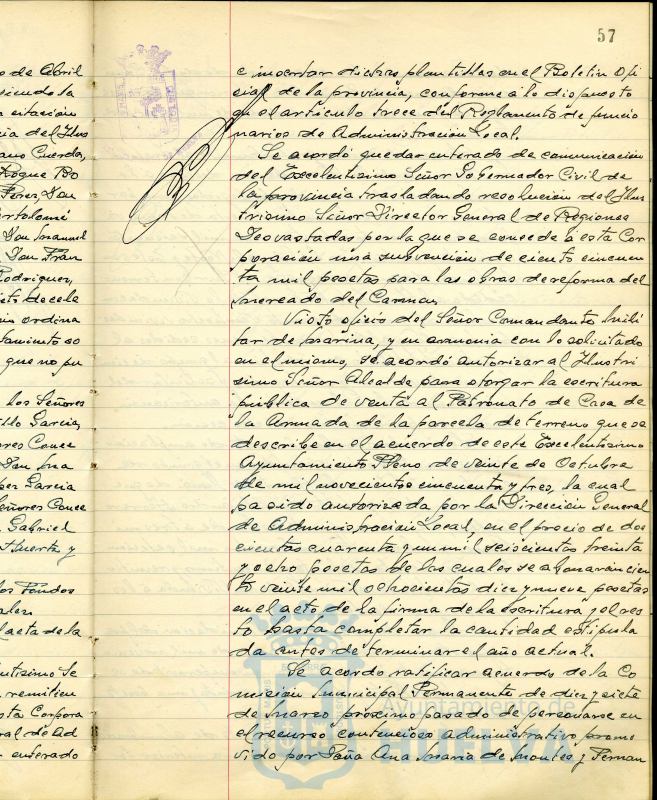 57
o de Abril
siendo la
a citación
cia del Ilus
ano Cuerda,
Roque Bo
Perez, Don
artolomé
Don Manuel
Don Fran
Rodriguez,
in ordina
tamiento so
que no pu
los Señores
llo Garcia,
ores Conce
Don Ma
pez Garcia
eñores Conce
Gabriel
Huerta y
los Fondos
ales
l acta de la
ntisimo Se
remitien
sta Corpora
ral de Ad
enterado
e insertar dichas plantillas en el Boletin Ofi
cial de la provincia, conforme a lo dispuesto
en el articulo trece del Reglamento de funcio
narios de Administración Local.
Se acordó quedar enterado de comunicación
del Excelentisimo Señor Gobernador Civil de
la provincia trasladando resolucion del Ilus
trisimo Señor Director General de Regiones
Devastadas por la que se concede a esta Cor
poración una subvención de ciento cincuen
ta mil pesetas para las obras de reforma del
Mercado del Carmen.
Visto oficio del Señor Comandante Mili
tar de Marina, y en armonia con lo solicitado
en el mismo, se acordó autorizar al Ilustri
simo Señor Alcalde para otorgar la escritura
pública de venta al Patronato de Casa de
la Armada de la parcela de terreno que se
describe en el acuerdo de este Excelentisimo
Ayuntamiento Pleno de veinte de Octubre
de mil novecientos cincuenta y tres, la cual
ha sido autorizada por la Dirección General
de Administracion Local, en el precio de dos
cientas cuarenta y un mil seiscientas treinta
y ocho pesetas de las cuales se abonarán cien
to veinte mil ochocientas diez y nueve pesetas
en el acto de la firma de la escritura y el res
to hasta completar la cantidad estipula
da antes de terminar el año actual.
Se acordó ratificar acuerdo de la Co
misión Municipal Permanente de diez y siete
de Marzo próximo pasado de personarse en
el recurso contencioso administrativo promo
vido por Doña Ana Maria de Montes y Fernan
Ayuntamiento de
HUELVA